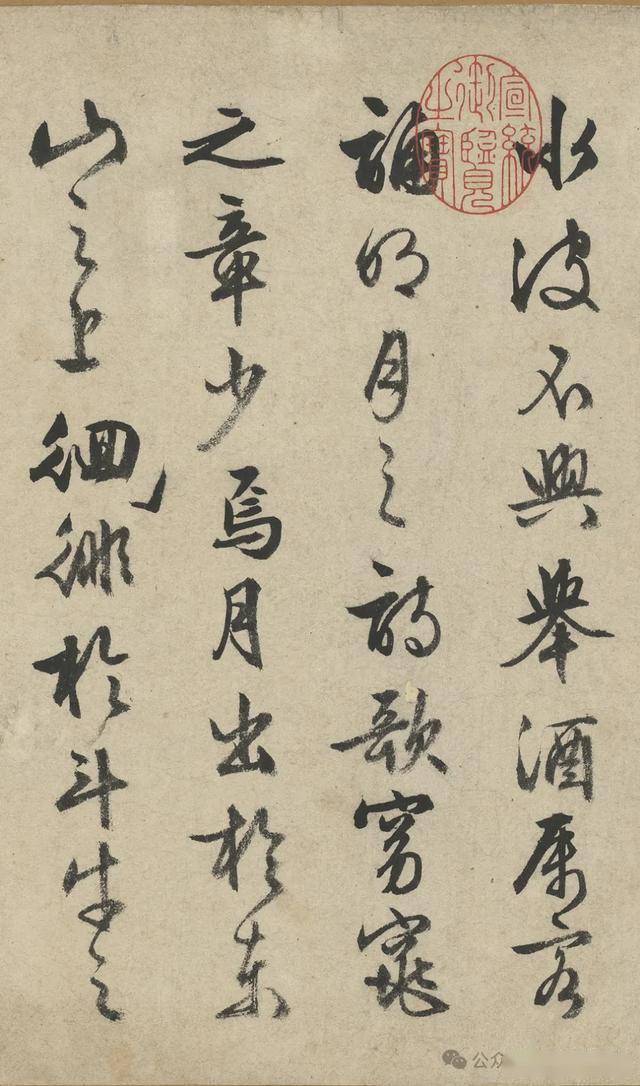 水波不興舉酒属客
誦明月之詩歌窈窕
之章少焉月出於东
山之上徊徘於斗牛之
宣統御覽之寶
公众